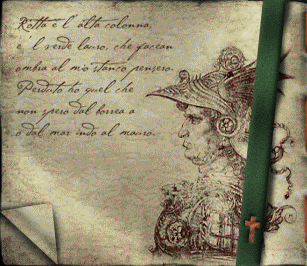 Rotta è l' alta colonna,
e 'l verde lauro, che facean
ombra al mio stanco pensero.
Perduto ho quel che
non spero dal borrea a
o dal mar indo al mauro.